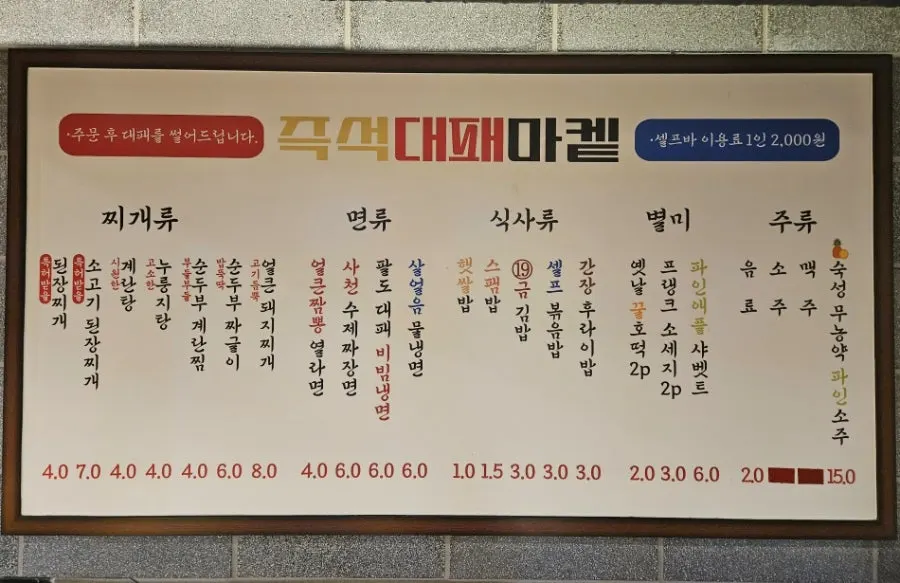 ·주문 후 대패를 썰어드립니다.
즉석대패마켙
·셀프바 이용료 1인 2,000원
찌개류
특허받은 된장찌개 4.0
특허받은 소고기 된장찌개 7.0
시원한 계란탕 4.0
고소한 누룽지탕 4.0
부들부들 순두부 계란찜 4.0
밥뚝딱 순두부 짜글이 6.0
고기듬뿍 얼큰 돼지찌개 8.0
면류
얼큰짬뽕 열라면 4.0
사천 수제 짜장면 6.0
팔도 대패 비빔냉면 6.0
살얼음 물냉면 6.0
식사류
햇쌀밥 1.0
스팸밥 1.5
19금 김밥 3.0
셀프 볶음밥 3.0
간장 후라이밥 3.0
별미
옛날 꿀호떡 2p 2.0
프랭크 소세지 2p 3.0
파인애플 샤벳트 6.0
주류
음료 2.0
소주
맥주
숙성 무농약 파인소주 15.0